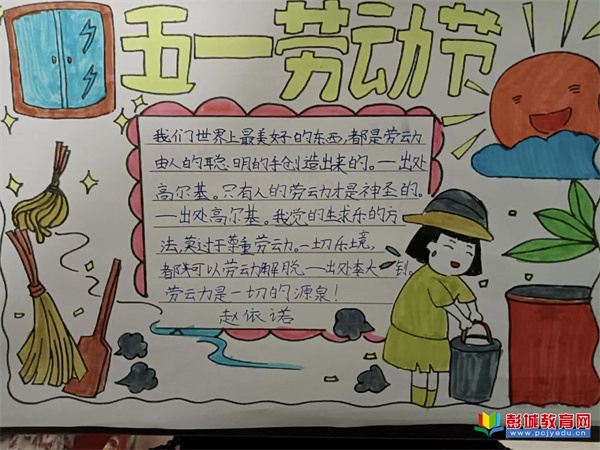 五一劳动节
我们世界上最美好的东西,都是劳动
由人的聪明的手创造出来的。—出处
高尔基。只有人的劳动才是神圣的。
—出处高尔基。我觉的生求乐的方
法,莫过于尊重劳动。一切乐境,
都可以劳动解脱—出处李大钊。
劳动力是一切的源泉!
赵依诺
彭城教育网
www.pcjyedu.cn